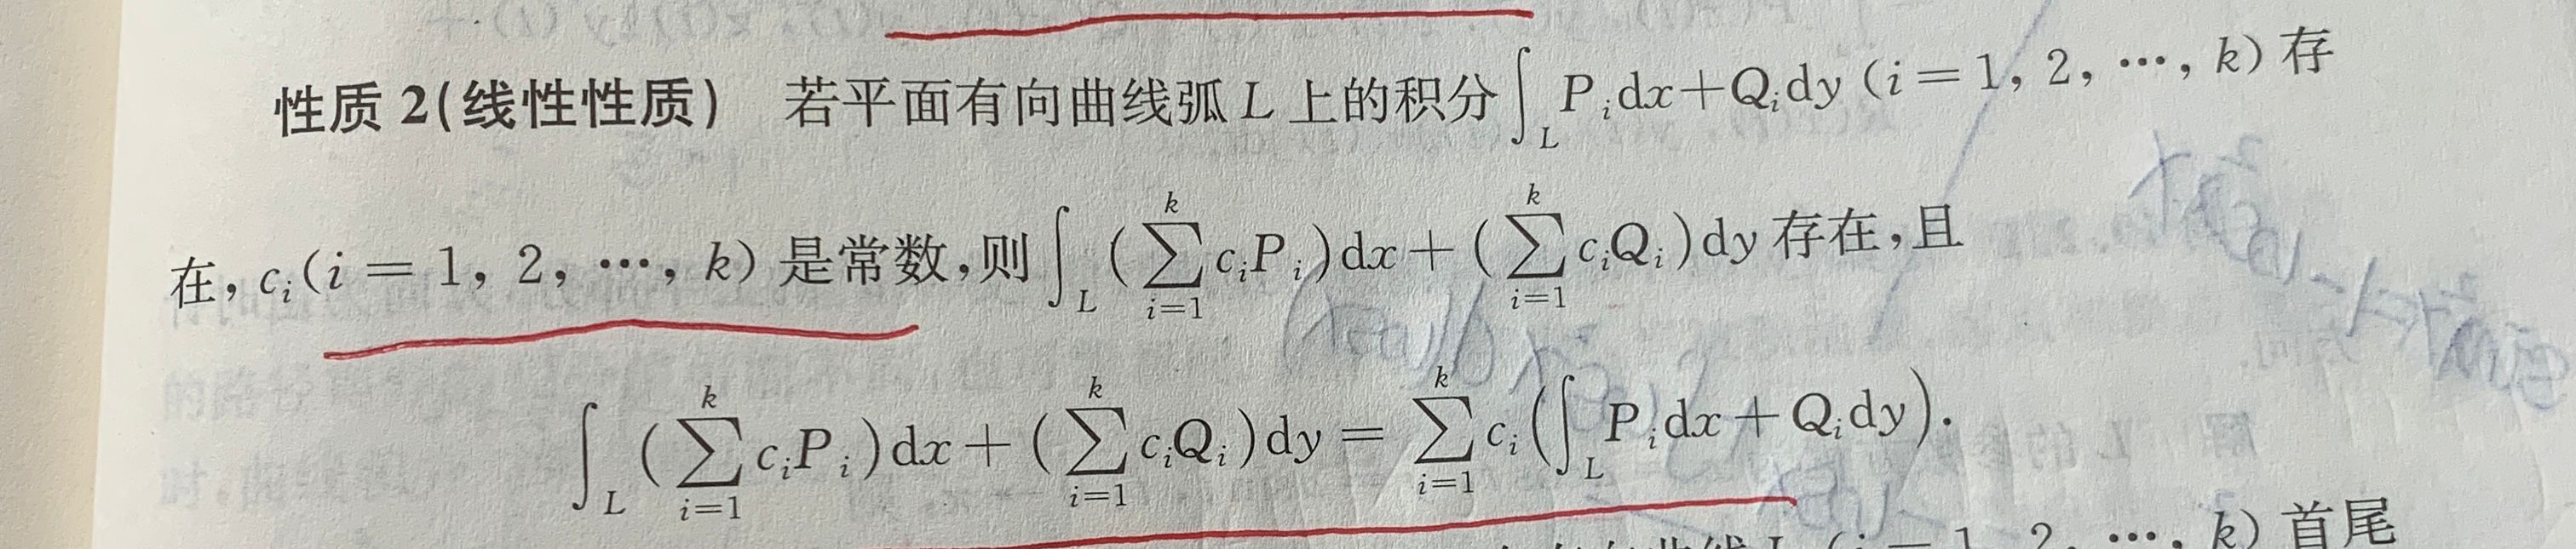 性质 2(线性性质) 若平面有向曲线弧 L 上的积分∫_L P_i dx+Q_i dy (i=1, 2, …, k) 存
在, c_i(i = 1, 2, …, k) 是常数,则∫_L (∑_{i=1}^{k} c_i P_i)dx + (∑_{i=1}^{k} c_i Q_i)dy 存在,且
∫_L (∑_{i=1}^{k} c_i P_i)dx + (∑_{i=1}^{k} c_i Q_i)dy = ∑_{i=1}^{k} c_i (∫_L P_i dx + Q_i dy).
(i = 1, 2, …, k) 首尾